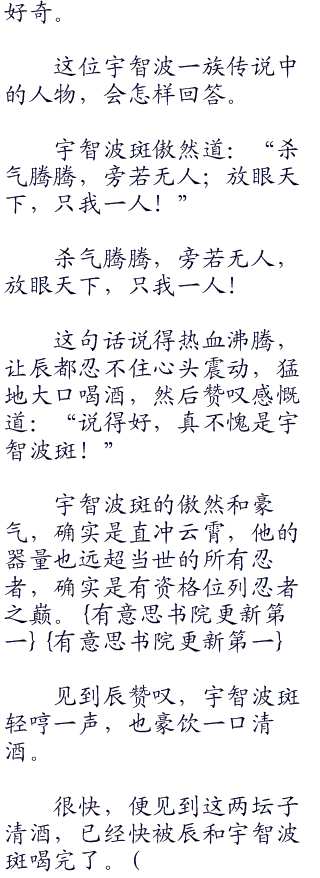 好奇。
这位宇智波一族传说中
的人物，会怎样回答。
宇智波斑傲然道：“杀
气腾腾，旁若无人；放眼天
下，只我一人！”
杀气腾腾，旁若无人，
放眼天下，只我一人！
这句话说得热血沸腾，
让辰都忍不住心头震动，猛
地大口喝酒，然后赞叹感慨
道：“说得好，真不愧是宇
智波斑！”
宇智波斑的傲然和豪
气，确实是直冲云霄，他的
器量也远超当世的所有忍
者，确实是有资格位列忍者
之巅。{有意思书院更新第
一} {有意思书院更新第一}
见到辰赞叹，宇智波斑
轻哼一声，也豪饮一口清
酒。
很快，便见到这两坛子
清酒，已经快被辰和宇智波
斑喝完了。（